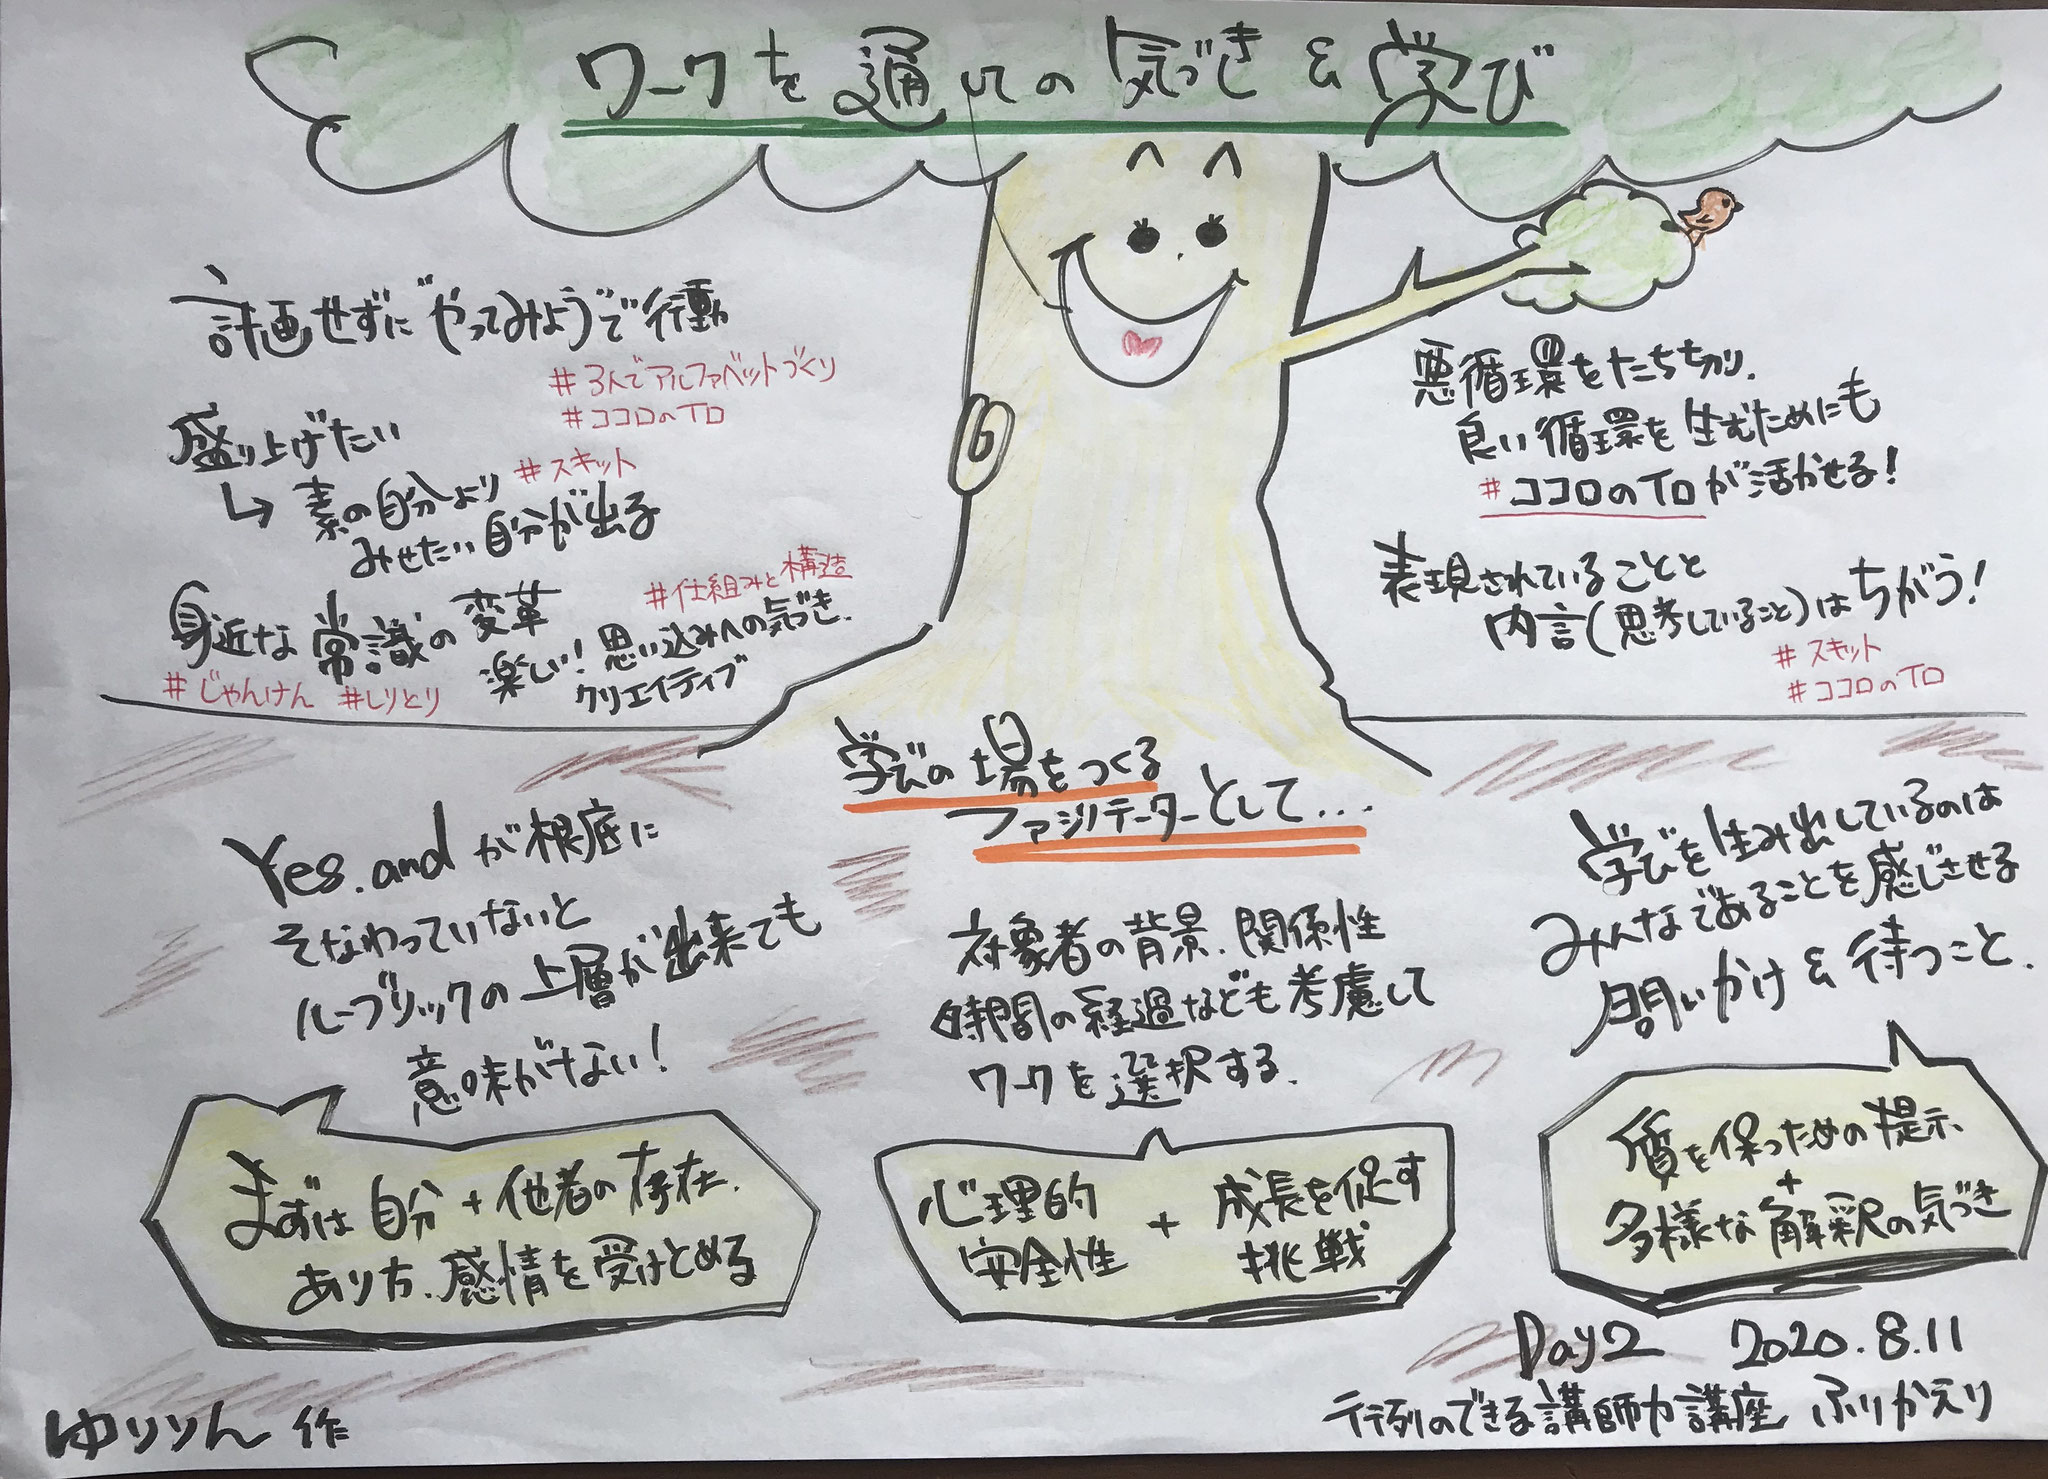 ワークを通しての気づき&学び
計画せずに"やってみよう"で行動
#3人でアルファベットづくり
#ココロのTロ
盛り上げたい
↳ 素の自分より #スキット
みせたい自分が出る
身近な常識の変革 #仕組みと構造
楽しい!思い込みへの気づき.
クリエイティブ
#じゃんけん #しりとり
悪循環をたちきり.
良い循環を生むためにも
#ココロのTロが活かせる!
表現されていることと
内言(思考していること)はちがう!
#スキット
#ココロのTロ
学びの場をつくる
ファシリテーターとして...
Yes.andが根底に
そなわっていないと
ルーブリックの上層が出来ても
意味がない!
まずは自分+他者の存在.
あり方.感情を受けとめる
対象者の背景.関係性
時間の経過なども考慮して
ワークを選択する.
心理的安全性 + 成長を促す挑戦
学びを生み出しているのは
みんなであることを感じさせる
問いかけ&待つこと.
質を保っための提示
+
多様な解釈の気づき
Day2 2020.8.11
のできる講師力講座 ふりかえり
ゆりりん 作